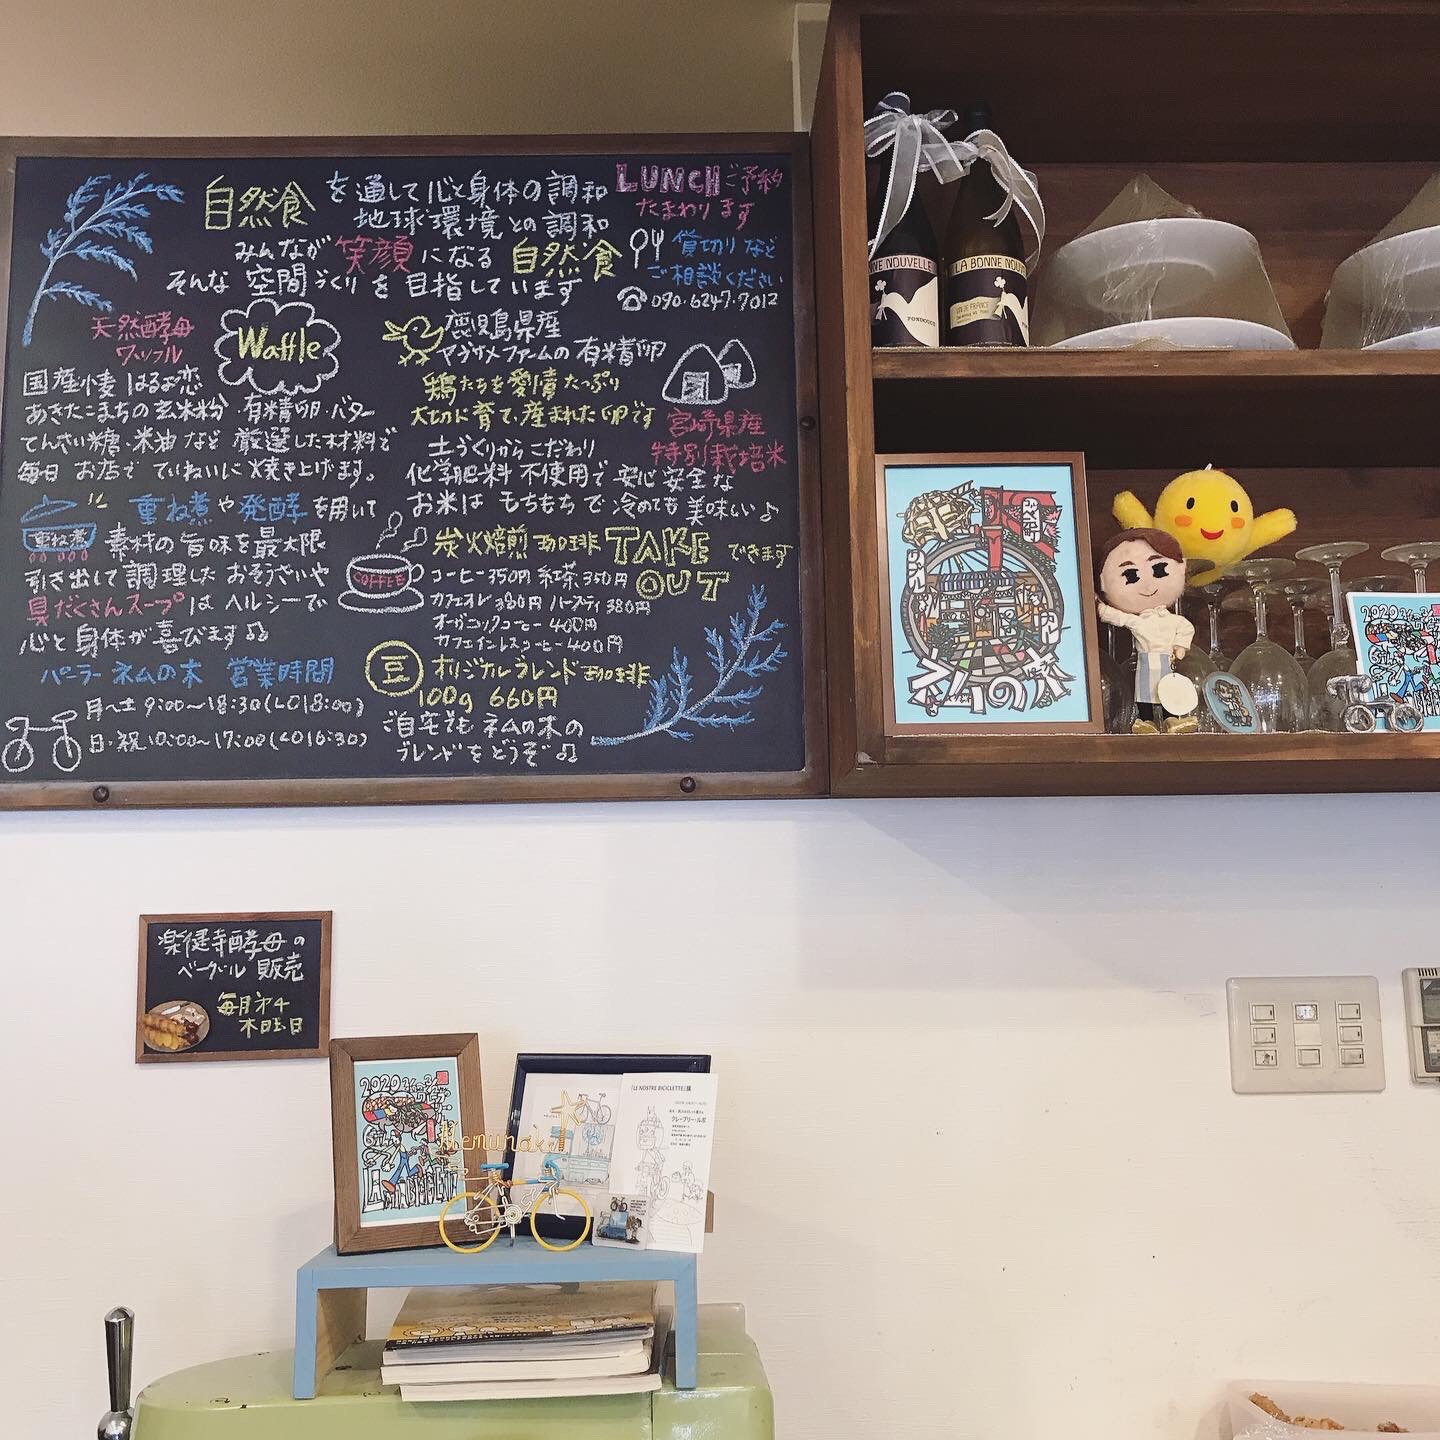 自然食を通して心と身体の調和
地球環境との調和
みんなが笑顔になる自然食
そんな空間づくりを目指しています
LUNCHご予約
たまわります
貸切りなど
ご相談ください
☎090.6247.7012
天然酵母
ワッフル
Waffle
国産小麦はるよ恋
あきたこまちの玄米粉・有精卵・バター
てんさい糖・米油など厳選した材料で
毎日お店でていねいに焼き上げます。
鹿児島県産
ヤマグサメファームの有精卵
鶏たちを愛情たっぷり
大切に育て、産まれた卵です
宮崎県産
特別栽培米
土づくりからこだわり
化学肥料不使用で安心安全な
お米はもちもちで冷めても美味しい♪
重ね煮
重ね煮や発酵を用いて
素材の旨味を最大限
引き出して調理したおそうざいや
具だくさんスープはヘルシーで
心と身体が喜びます♫
COFFEE
炭火焙煎珈琲
TAKE OUTできます
コーヒー350円 紅茶350円
カフェオレ380円 ハーブティ380円
オーガニックコーヒー400円
カフェインレスコーヒー400円
豆 オリジナルブレンド珈琲
100g 660円
ご自宅でもネムの木の
ブレンドをどうぞ♫
パーラーネムの木 営業時間
月〜土 9:00〜18:30(LO18:00)
日・祝10:00〜17:00(LO16:30)
NNE NOUVELLE
LA BONNE NOU
VIN DE FRANCE
FONDOUCE
FONDOU
ネムの木
2020
楽健寺酵母の
ベーグル販売
毎月第4
木曜日
2020
Nemunoki
「LE NOSTRE BICICLETTE」展
クレープリー・ルポ